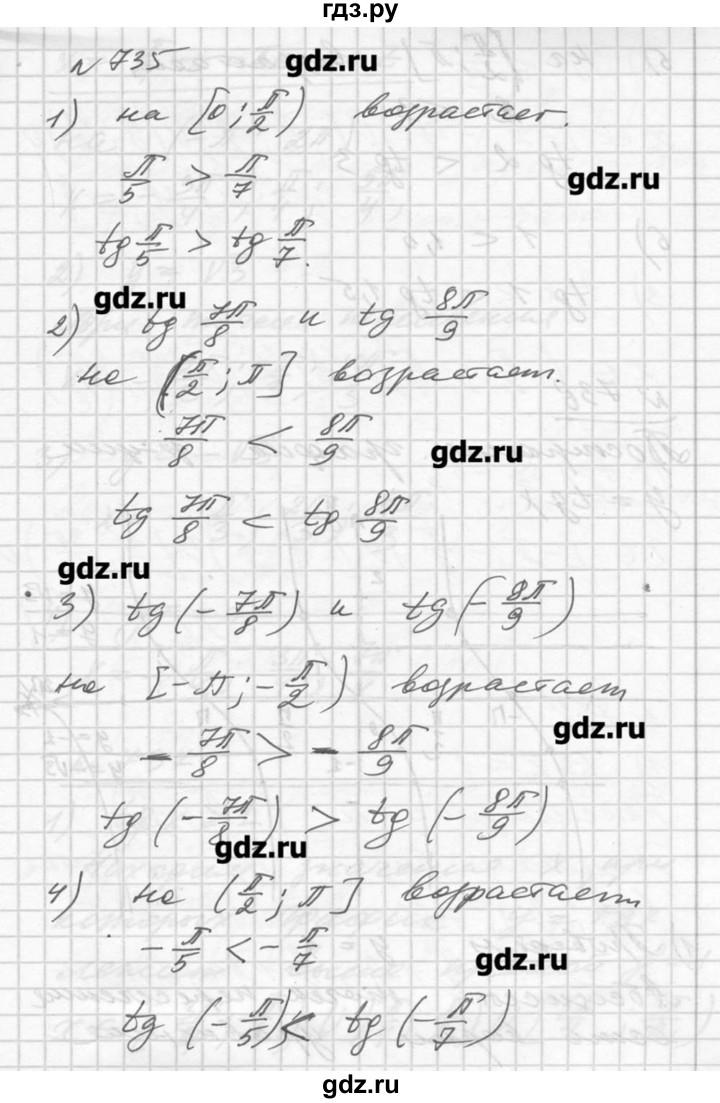 гдз.ру
№ 735
gdz.ru
1) на [0; π/2) возрастает.
π/5 > π/7
gdz.ru
tg π/5 > tg π/7.
gdz.ru
2) tg 7π/8 и tg 8π/9
на (π/2; π] возрастает.
7π/8 < 8π/9
gdz.ru
tg 7π/8 < tg 8π/9
gdz.ru
3) tg (- 7π/8) и tg (- 8π/9)
на [-π; -π/2) возрастает
gdz.ru
- 7π/8 > - 8π/9
tg (- 7π/8) > tg (- 8π/9)
gdz.ru
4) на (π/2; π] возрастает
- π/5 < - π/7
gdz.ru
tg (- π/5) < tg (- π/7)
gdz.ru